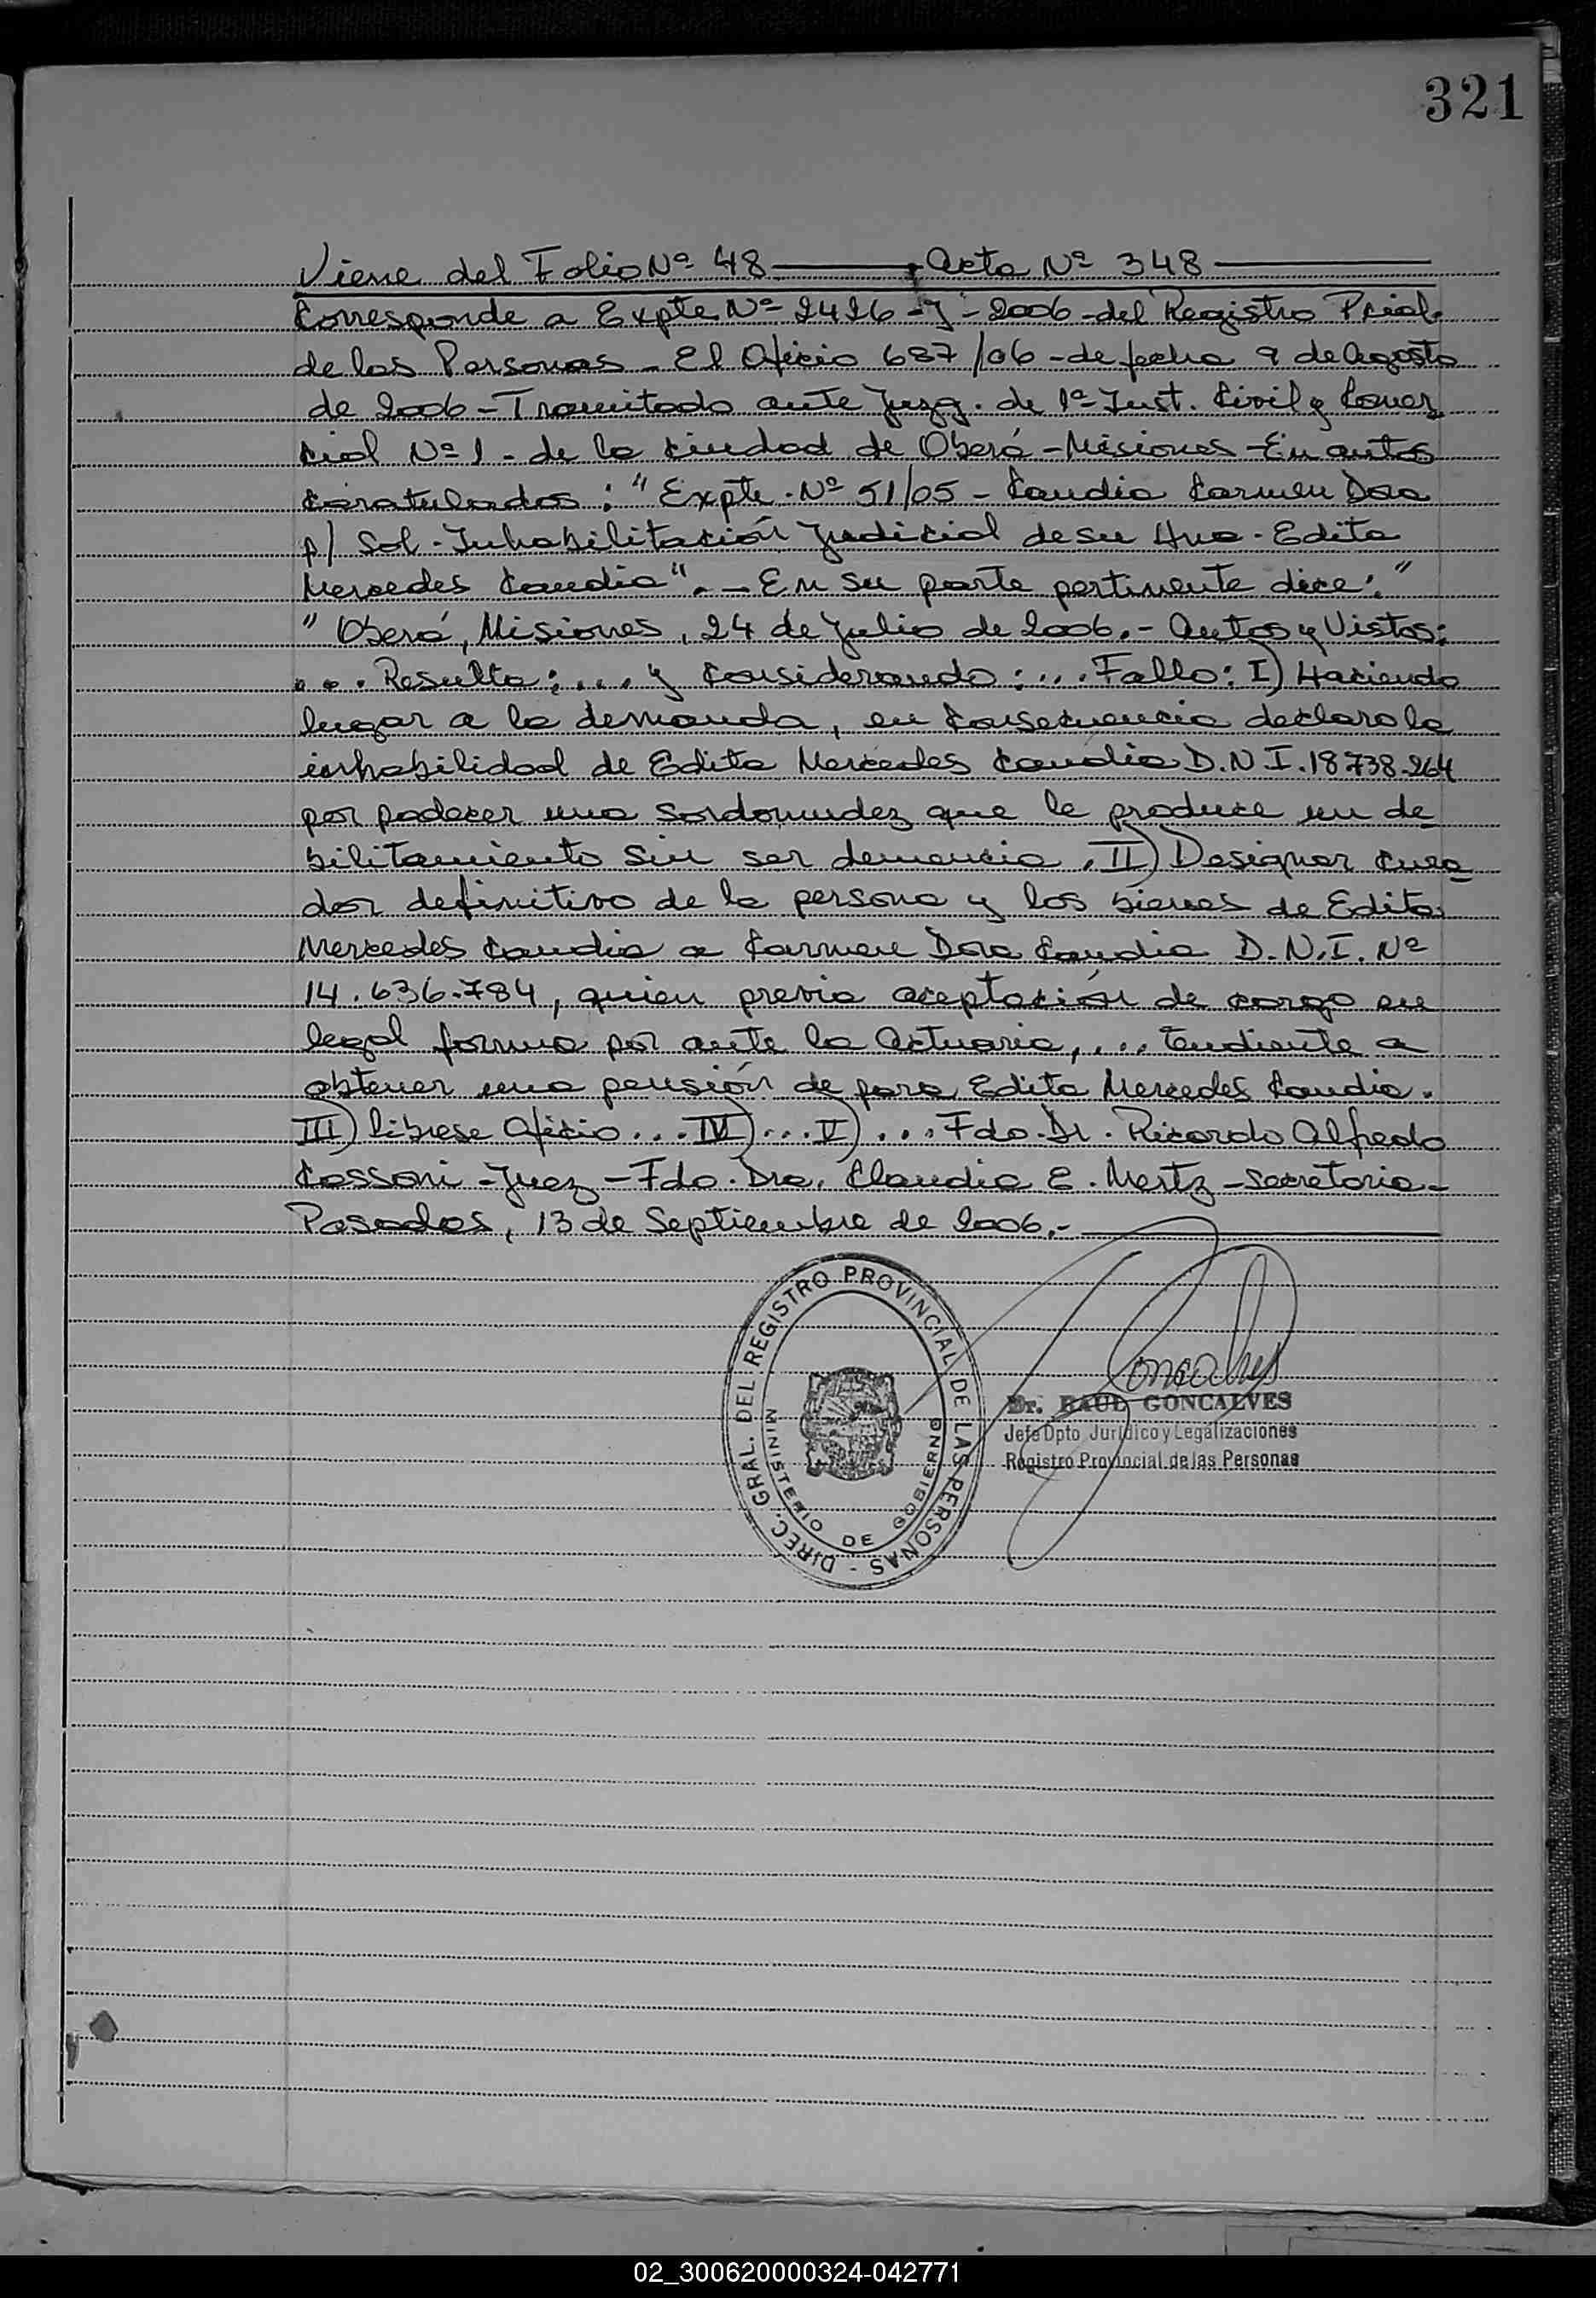 321
Viene del Folio Nº 48 ——— Acta Nº 348 ———
Corresponde a Expte Nº 2426-J-2006-del Registro Pcial.
de las Personas - El Oficio 687/06 - de fecha 9 de Agosto
de 2006 - Tramitado ante Juzg. de 1ª Inst. Civil y Comer
cial Nº 1 - de la ciudad de Oberá - Misiones - En autos
caratulados: "Expte. Nº 51/05 - Candia Carmen Dora
p/ Sol. Inhabilitación Judicial de su Hna. Edita
Mercedes Candia". - En su parte pertinente dice: "
"Oberá, Misiones, 24 de Julio de 2006.- Autos y Vistos:
... Resulta: ... y Considerando: ... Fallo: I) Haciendo
lugar a la demanda, en consecuencia declaro la
inhabilidad de Edita Mercedes Candia D.N.I. 18.738.264
por padecer una sordomudez que le produce un de
bilitamiento sin ser demencia. II) Designar cura
dor definitivo de la persona y los bienes de Edita
Mercedes Candia a Carmen Dora Candia D.N.I. Nº
14.636.784, quien previa aceptación de cargo en
legal forma por ante la Actuaria, ... tendiente a
obtener una pensión de para Edita Mercedes Candia.
III) líbrese Oficio ... IV) ... V) ... Fdo. Dr. Ricardo Alfredo
Cassoni - Juez - Fdo. Dra. Claudia E. Mertz - Secretaria -
Posadas, 13 de Septiembre de 2006.-
DIREC. GRAL. DEL REGISTRO PROVINCIAL DE LAS PERSONAS -
MINISTERIO DE GOBIERNO
Goncalves
Dr. RAUL GONCALVES
Jefe Dpto Jurídico y Legalizaciones
Registro Provincial de las Personas
02_300620000324-042771